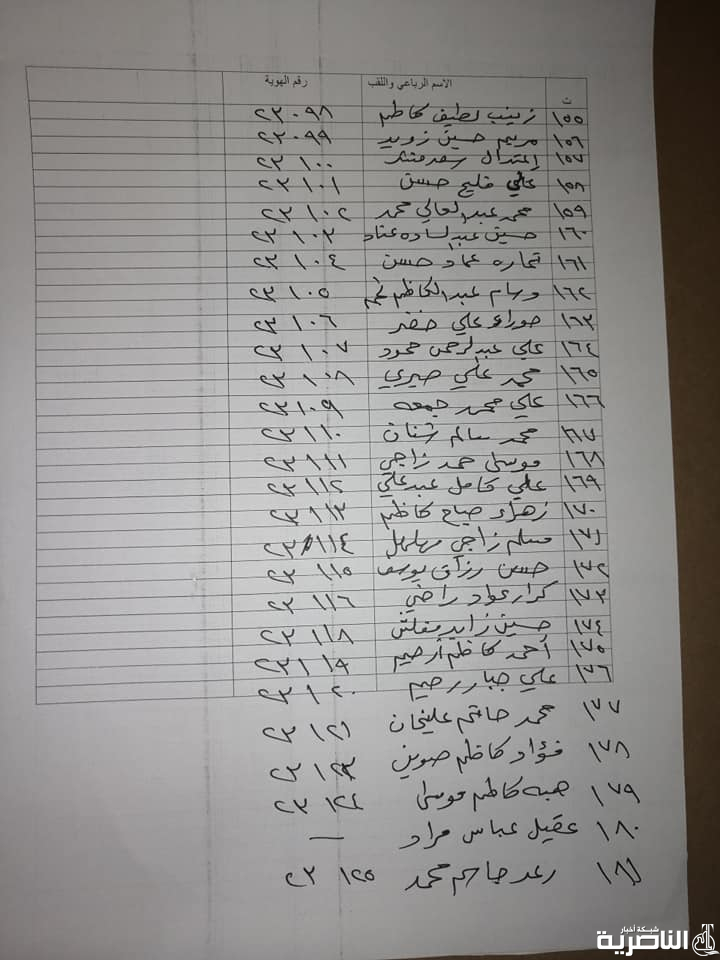 ت الاسم الرباعي واللقب رقم الهوية
١٥٥ زينب لطيف كاظم ٢٣٠٩٨
١٥٦ مريم حسين زويد ٢٣٠٩٩
١٥٧ إعتدال سعد ٢٣١٠٠
١٥٨ علي فليح حسن ٢٣١٠١
١٥٩ محمد عبد العالي محمد ٢٣١٠٢
١٦٠ حسين عبد الساده عناد ٢٣١٠٣
١٦١ عماد حسن ٢٣١٠٤
١٦٢ وسام عبد الكاظم ٢٣١٠٥
١٦٣ حوراء علي خضر ٢٣١٠٦
١٦٤ علي عبد الرحمن محمود ٢٣١٠٧
١٦٥ محمد علي صبري ٢٣١٠٨
١٦٦ علي محمد جمعه ٢٣١٠٩
١٦٧ محمد سالم شنان ٢٣١١٠
١٦٨ موسى حمد زاجي ٢٣١١١
١٦٩ علي كامل عبد علي ٢٣١١٢
١٧٠ زهراء صباح كاظم ٢٣١١٣
١٧١ مسلم زاجي مهلهل ٢٣١١٤
١٧٢ حسن رزاق يوسف ٢٣١١٥
١٧٣ كرار عواد راضي ٢٣١١٦
١٧٤ حسين زاير ٢٣١١٨
١٧٥ أحمد كاظم ارحيم ٢٣١١٩
١٧٦ علي جبار رحيم ٢٣١٢٠
١٧٧ محمد حاتم عليخان ٢٣١٢١
١٧٨ فؤاد كاظم صوين
١٧٩ هبه كاظم موسى ٢٣١٢٤
١٨٠ عقيل عباس مراد —
١٨١ رعد جاسم محمد ٢٣١٢٥
شبكة أخبار
الناصرية